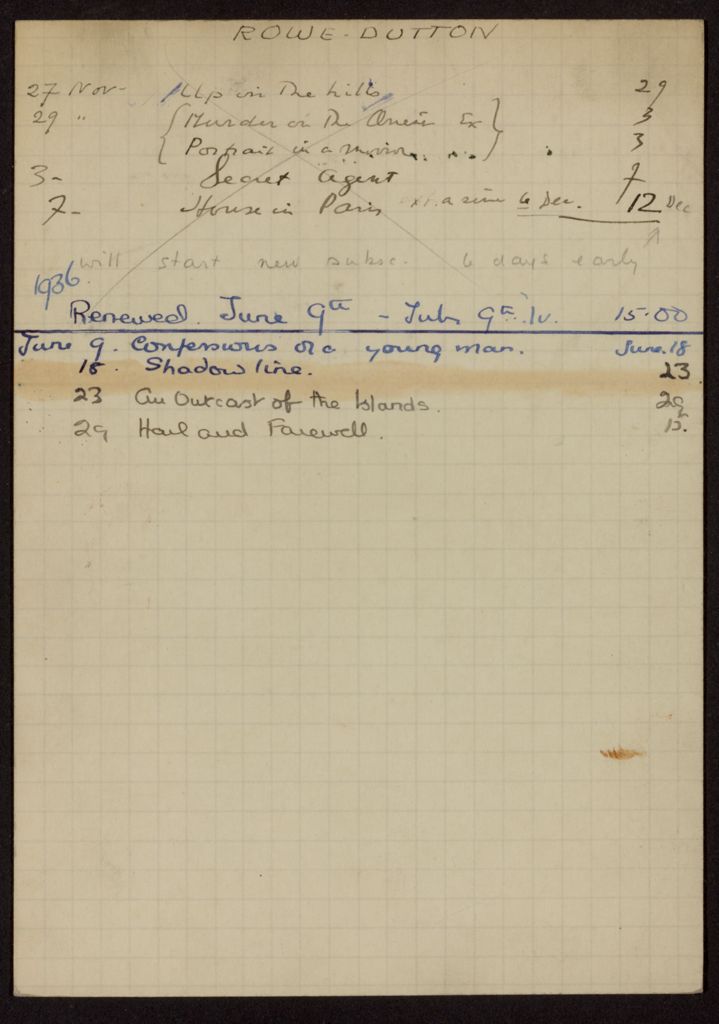 ROWE-DUTTON
27 Nov- Up in the hills 29
29 " { Murder on the Orient Ex } 3
Portrait in a mirror 3
3- Secret Agent 7
7- House in Paris 6 Dec. 12 Dec
will start new subsc. 6 days early
1936
Renewed. June 9th - July 9th. 1v. 15.00
June 9. Confessions of a young man. June.18
18. Shadow line. 23
23 An Outcast of the Islands. 29
29 Hail and Farewell.